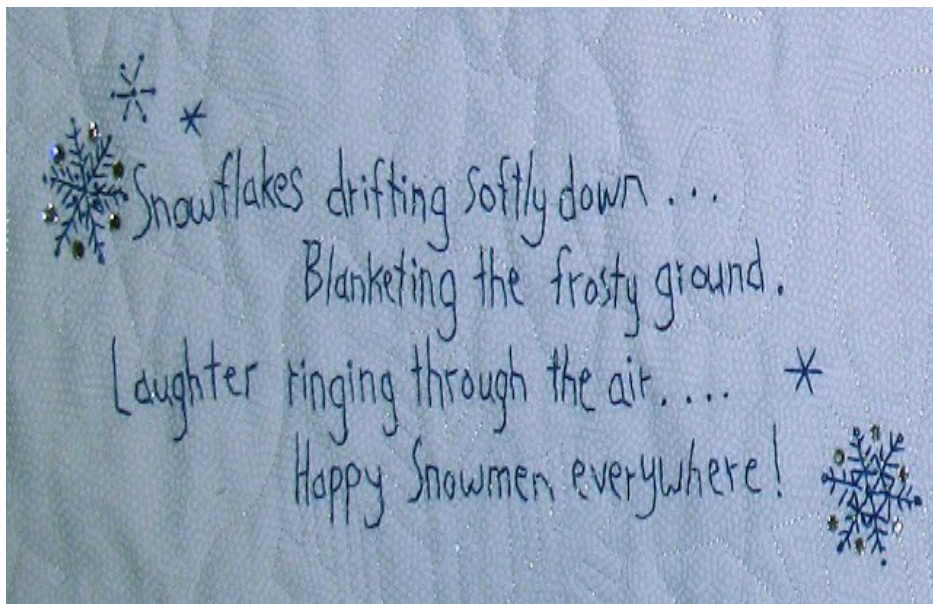 Snowflakes drifting softly down ...
Blanketing the frosty ground.
Laughter ringing through the air....
Happy Snowmen everywhere!